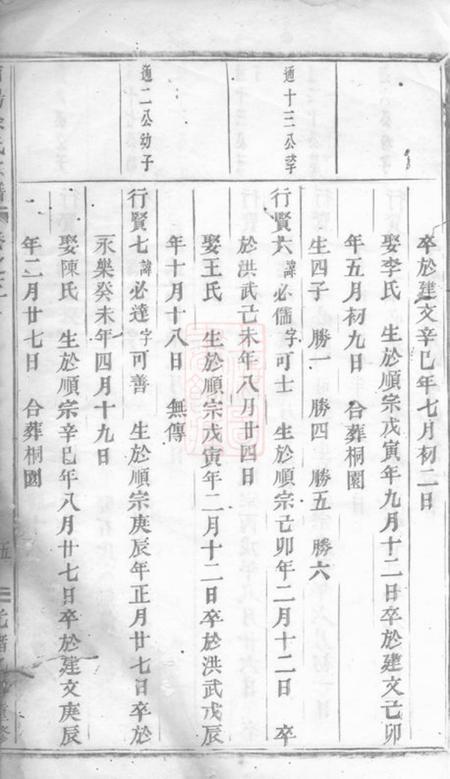 卒於建文辛巳年七月初二日
娶李氏 生於順宗戊寅年九月十二日卒於建文己卯
年五月初九日 合葬桐園
生四子 勝一 勝四 勝五 勝六
通十三公
行賢六諱必儒字可士 生於順宗己卯年二月十二日 卒
於洪武己未年八月廿四日
娶王氏 生於順宗戊寅年二月十二日卒於洪武戊辰
年十月十八日 無傳
通二公幼子
行賢七諱必達字可善 生於順宗庚辰年正月廿七日卒於
永樂癸未年四月十九日
娶陳氏 生於順宗辛巳年八月廿七日卒於建文庚辰
年二月廿七日 合葬桐園
五